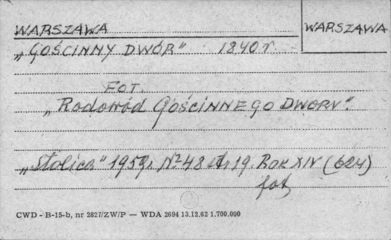 WARSZAWA
WARSZAWA
"GOŚCINNY DWÓR" 1840 r.
FOT.
„Rodowód GOŚCINNEGO DWORU".
„Stolica" 1959 r. Nº 48 str 19. ROK XIV (624)
fot.
CWD - B-15-b, nr 2827/ZW/P — WDA 2694 13.12.62 1.700.000